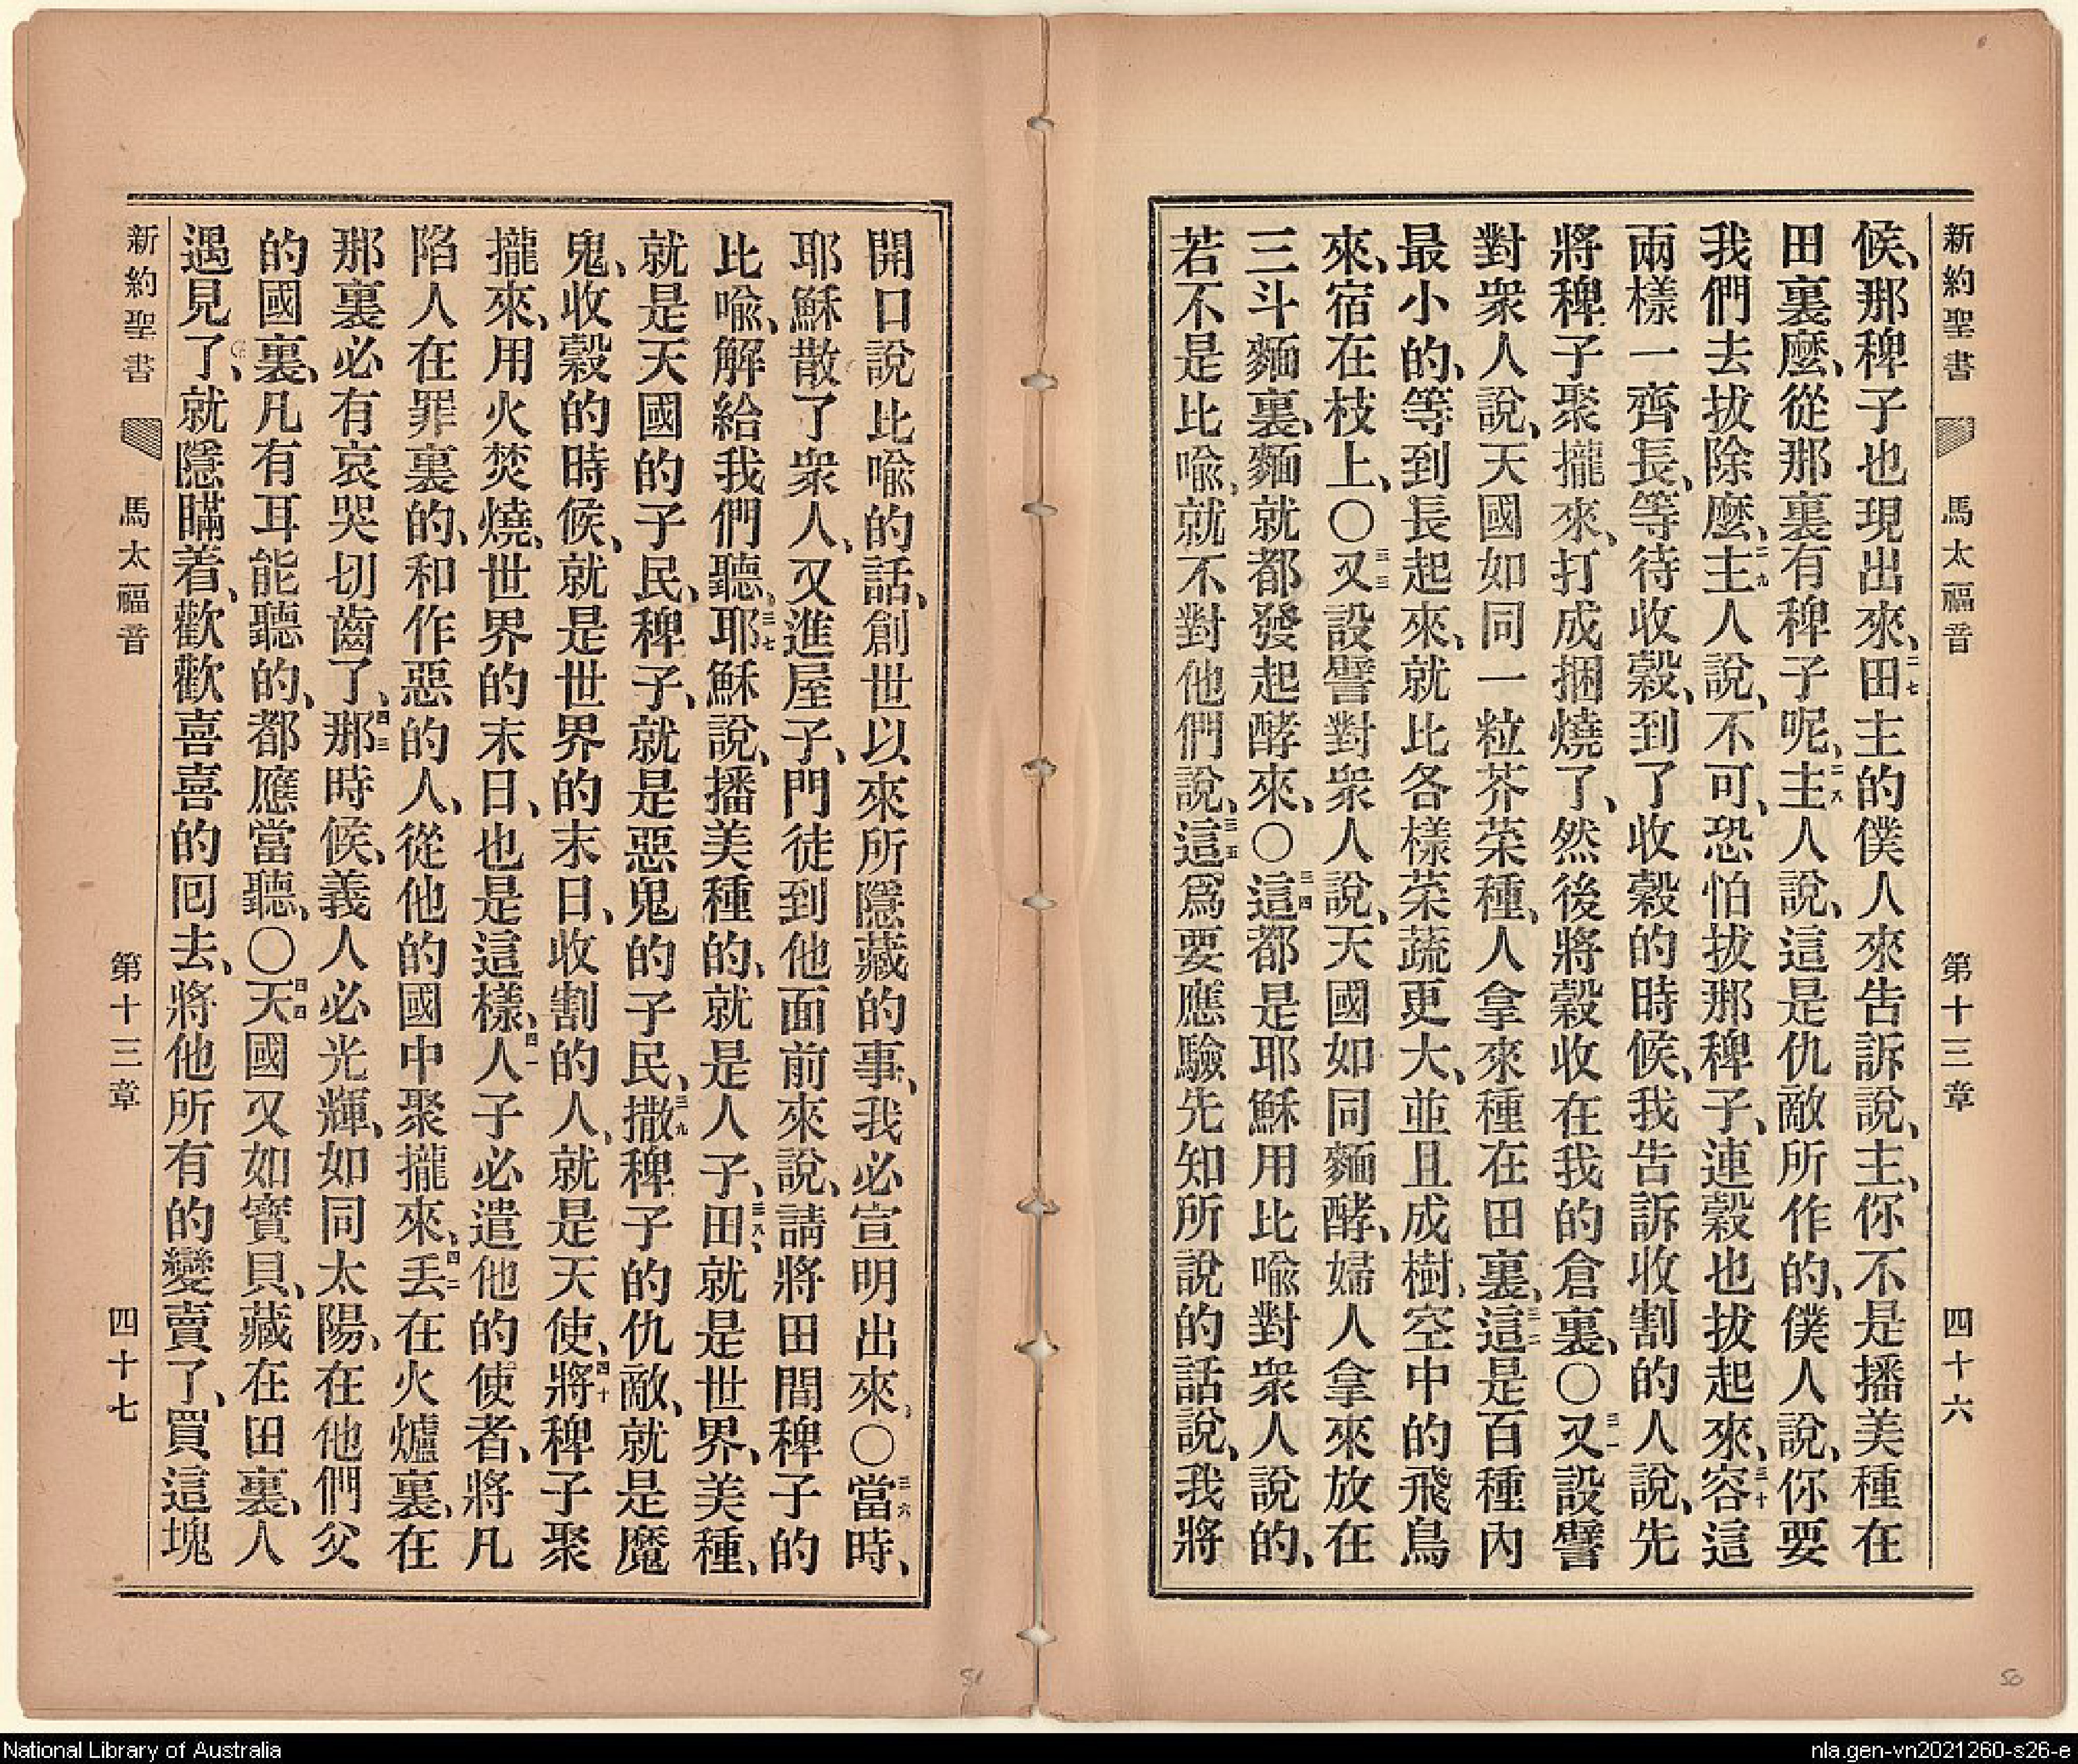 新約聖書 馬太福音 第十三章 四十六
候、那稗子也現出來、二七田主的僕人來告訴說、主、你不是播美種在
田裏麼、從那裏有稗子呢、二八主人說、這是仇敵所作的、僕人說、你要
我們去拔除麼、二九主人說、不可、恐怕拔那稗子、連穀也拔起來、三十容這
兩樣一齊長、等待收穀、到了收穀的時候、我告訴收割的人說、先
將稗子聚攏來、打成捆燒了、然後將穀收在我的倉裏、〇三一又設譬
對衆人說、天國如同一粒芥菜種、人拿來種在田裏、三二這是百種內
最小的、等到長起來、就比各樣菜蔬更大、並且成樹、空中的飛鳥
來、宿在枝上、〇三三又設譬對衆人說、天國如同麵酵、婦人拿來放在
三斗麵裏、麵就都發起酵來、〇三四這都是耶穌用比喩對衆人說的、
若不是比喩、就不對他們說、三五這爲要應驗先知所說的話說、我將
開口說比喩的話、創世以來所隱藏的事、我必宣明出來、〇三六當時、
耶穌散了衆人、又進屋子、門徒到他面前來說、請將田間稗子的
比喩、解給我們聽、三七耶穌說、播美種的、就是人子、三八田、就是世界、美種、
就是天國的子民、稗子、就是惡鬼的子民、三九撒稗子的仇敵、就是魔
鬼、收穀的時候、就是世界的末日、收割的人、就是天使、四十將稗子聚
攏來、用火焚燒、世界的末日、也是這樣、四一人子必遣他的使者、將凡
陷人在罪裏的、和作惡的人、從他的國中聚攏來、四二丢在火爐裏、在
那裏必有哀哭切齒了、四三那時候、義人必光輝、如同太陽、在他們父
的國裏、凡有耳能聽的、都應當聽、〇四四天國又如寶貝、藏在田裏、人
遇見了、就隱瞞着、歡歡喜喜的囘去、將他所有的變賣了、買這塊
新約聖書 馬太福音 第十三章 四十七
51
50
National Library of Australia
nla.gen-vn2021260-s26-e